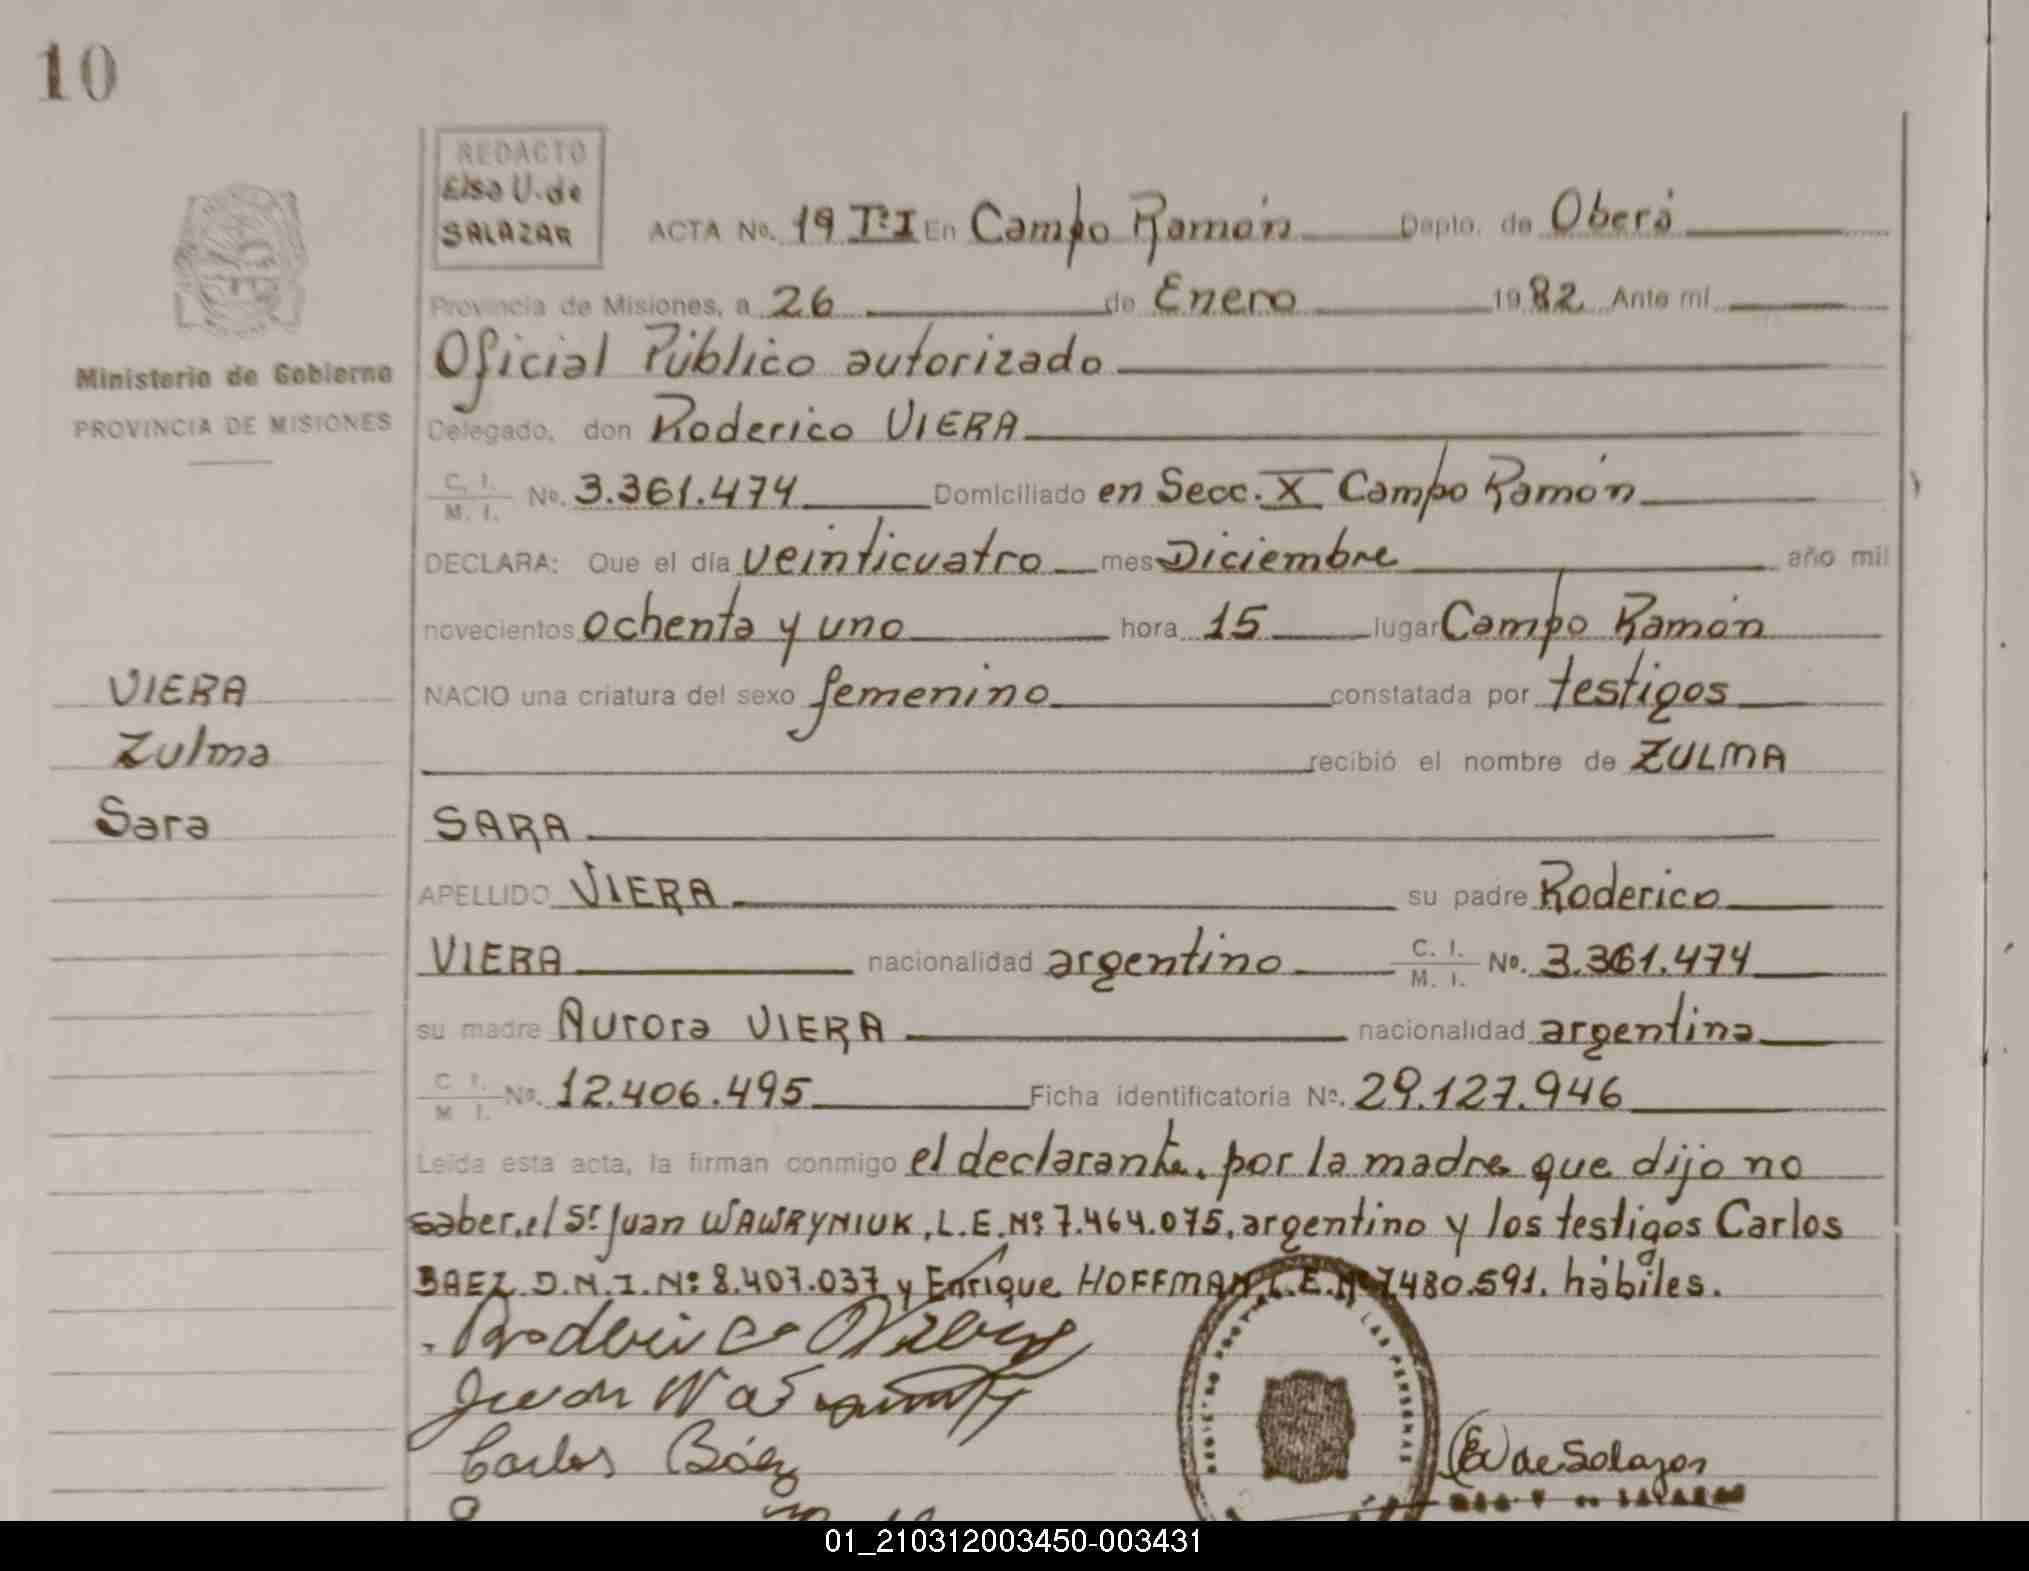 10
REDACTO
Elsa U. de
SALAZAR
ACTA No. 19 Tº I En Campo Ramón Depto. de Oberá
Provincia de Misiones, a 26 de Enero 1982 Ante mí
Oficial Público autorizado
Ministerio de Gobierno
PROVINCIA DE MISIONES
Delegado, don Roderico VIERA
C. I.
M. I. No. 3.361.474 Domiciliado en Secc. X Campo Ramón
DECLARA: Que el día veinticuatro mes Diciembre año mil
novecientos ochenta y uno hora 15 lugar Campo Ramón
VIERA
Zulma
Sara
NACIO una criatura del sexo femenino constatada por testigos
recibió el nombre de ZULMA
SARA
APELLIDO VIERA su padre Roderico
VIERA nacionalidad argentino C. I. M. I. No. 3.361.474
su madre Aurora VIERA nacionalidad argentina
C. I. M. I. No. 12.406.495 Ficha identificatoria Nº. 29.127.946
Leída esta acta, la firman conmigo el declarante. por la madre que dijo no
saber, el Sr. Juan WAWRYNIUK, L.E. Nº 7.464.075, argentino y los testigos Carlos
BAEZ D.N.I. Nº 8.407.037 y Enrique HOFFMAN L.E. Nº 7480.591. hábiles.
Roderico Viera
Juan
Carlos Báez
LAS PERSONAS
de Salazar
01_210312003450-003431